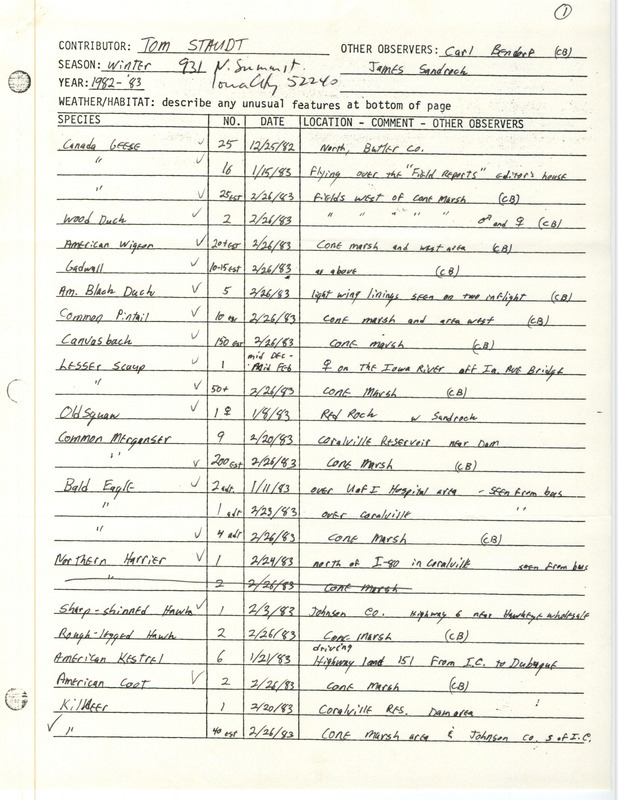 1
CONTRIBUTOR: TOM STAUDT OTHER OBSERVERS: Carl Bendorf (CB)
SEASON: Winter 931 N. Summit. James Sandrock
YEAR: 1982-'83 Iowa City 52240
WEATHER/HABITAT: describe any unusual features at bottom of page
SPECIES NO. DATE LOCATION - COMMENT - OTHER OBSERVERS
Canada GEESE ✓ 25 12/25/82 North, Butler Co.
" ✓ 16 1/15/83 Flying over the "Field Reports" editor's house
" ✓ 25 est 2/26/83 Fields west of Cone Marsh (CB)
Wood Duck ✓ 2 2/26/83 " " " " " ♂ and ♀ (CB)
American Wigeon ✓ 20+est 2/26/83 Cone marsh and west area (CB)
Gadwall ✓ 10-15 est 2/26/83 as above (CB)
Am. Black Duck ✓ 5 2/26/83 light wing linings seen on two inflight (CB)
Common Pintail ✓ 10 est 2/26/83 Cone marsh and area west (CB)
Canvasback ✓ 150 est 2/26/83 Cone marsh (CB)
Lesser Scaup ✓ 1 mid DEC - Mid Feb ♀ on the Iowa River off Ia. Ave Bridge
" ✓ 50+ 2/26/83 Cone Marsh (CB)
Old Squaw ✓ 1 ♀ 1/8/83 Red Rock w Sandrock
Common Merganser 9 2/20/83 Coralville Reservoir near Dam
" ✓ 200 est 2/26/83 Cone Marsh (CB)
Bald Eagle ✓ 2 adt. 1/11/83 over U of I Hospital area - seen from bus
" 1 adt 2/23/83 over Coralville "
" ✓ 4 adt 2/26/83 Cone Marsh (CB)
Northern Harrier ✓ 1 2/24/83 north of I-80 in Coralville seen from bus
" 2 2/26/83 Cone Marsh
Sharp-shinned Hawk ✓ 1 2/3/83 Johnson Co. Highway 6 near Hawkeye wholesale
Rough-legged Hawk 2 2/26/83 Cone Marsh (CB)
driving
American Kestrel 6 1/21/83 Highway 1 and 151 From I.C. to Dubuque
American Coot ✓ 2 2/26/83 Cone Marsh (CB)
Killdeer 1 2/20/83 Coralville Res. Dam area
✓ " 40 est 2/26/83 Cone Marsh area & Johnson Co. S of I.C.